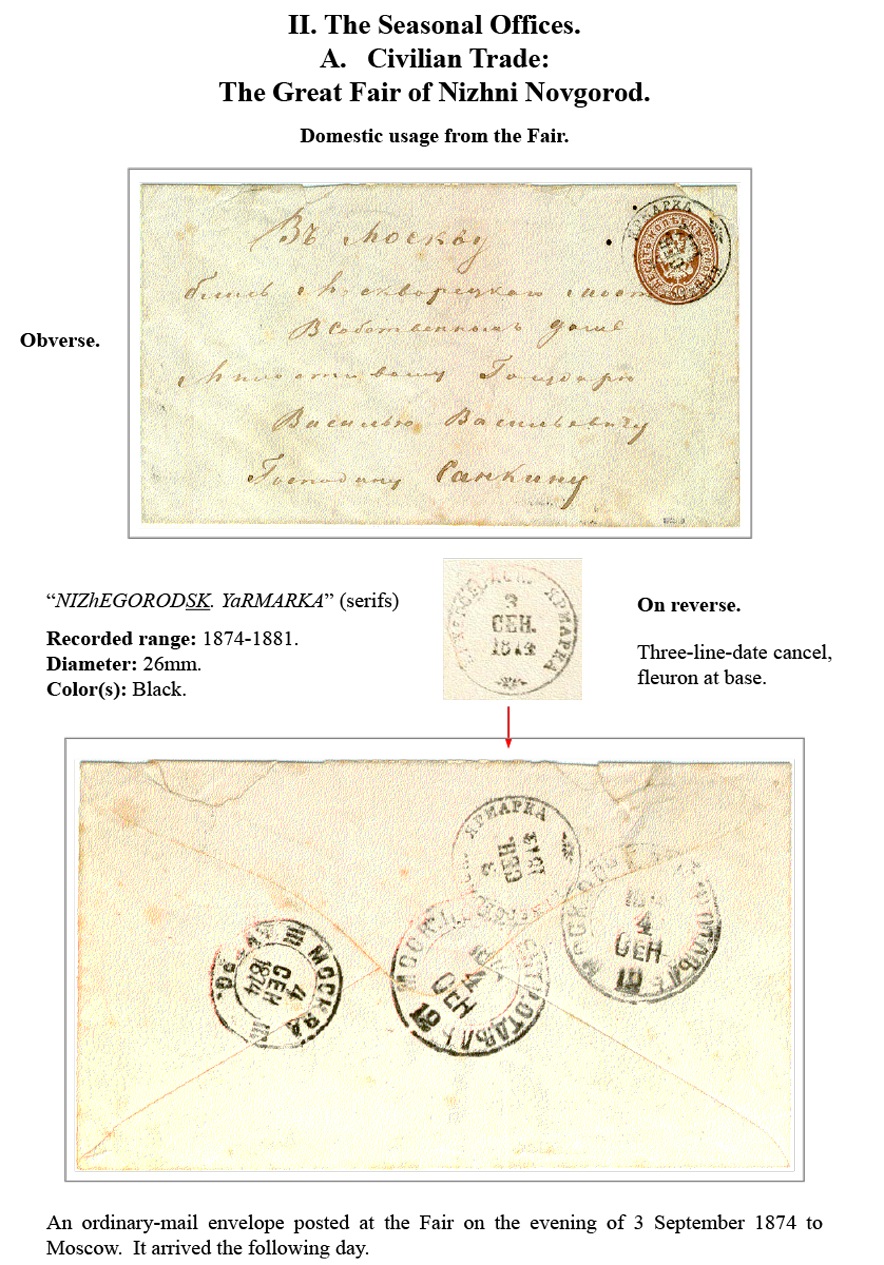 II. The Seasonal Offices.
A. Civilian Trade:
The Great Fair of Nizhni Novgorod.
Domestic usage from the Fair.
Въ Москву
близь Москворецкаго
В Собственномъ доме
Милостивому Государю
Василью Васильевичу
Господину Санкину
ЯРМАРКА
Obverse.
“NIZhEGORODSK. YaRMARKA” (serifs)
Recorded range: 1874-1881.
Diameter: 26mm.
Color(s): Black.
ЯРМАРКА
3
СЕН.
1874
On reverse.
Three-line-date cancel,
fleuron at base.
ЯРМАРКА
3
СЕН.
МОСКВА
4
СЕН
1874
III
4
СЕН
4
СЕН
An ordinary-mail envelope posted at the Fair on the evening of 3 September 1874 to
Moscow. It arrived the following day.